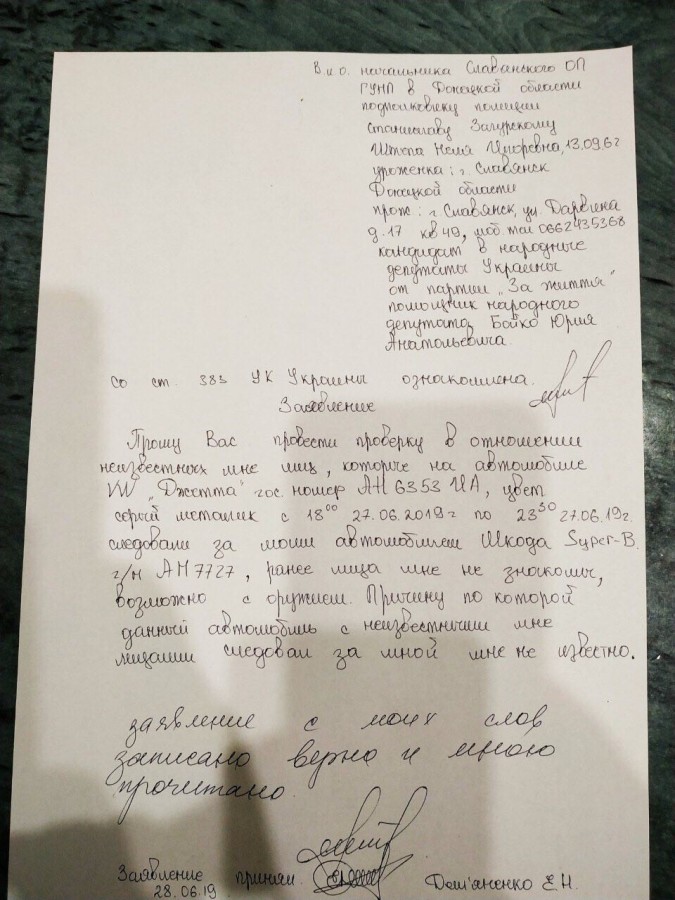 В и о. начальника Славянского ОП
ГУНП в Донецкой области
подполковнику полиции
Станиславу Загурскому
Штепа Неля Игоревна, 13.09.62
уроженка: г. Славянск
Донецкой области
прож: г. Славянск, ул. Дарвина
д. 17 кв 49, моб. тел 0662435368
кандидат в народные
депутаты Украины
от партии „За життя"
помощник народного
депутата, Бойко Юрия
Анатольевича.
Со ст. 383 УК Украины ознакомлена.
Заявление
Прошу Вас провести проверку в отношении
неизвестных мне лиц, которые на автомобиле
VW „Джетта" гос. номер АН 6353 ИА, цвет
серый металик с 18⁰⁰ 27.06.2019г по 23³⁰ 27.06.19г.
следовали за моим автомобилем Шкода Syper-B.
г/н АН 7727, ранее лица мне не знакомы,
возможно с оружием. Причину по которой
данный автомобиль с неизвестными мне
лицами следовал за мной мне не известно.
заявление с моих слов
записано верно и мною
прочитано
Заявление принял Дем'яненко Е.Н.
28.06.19